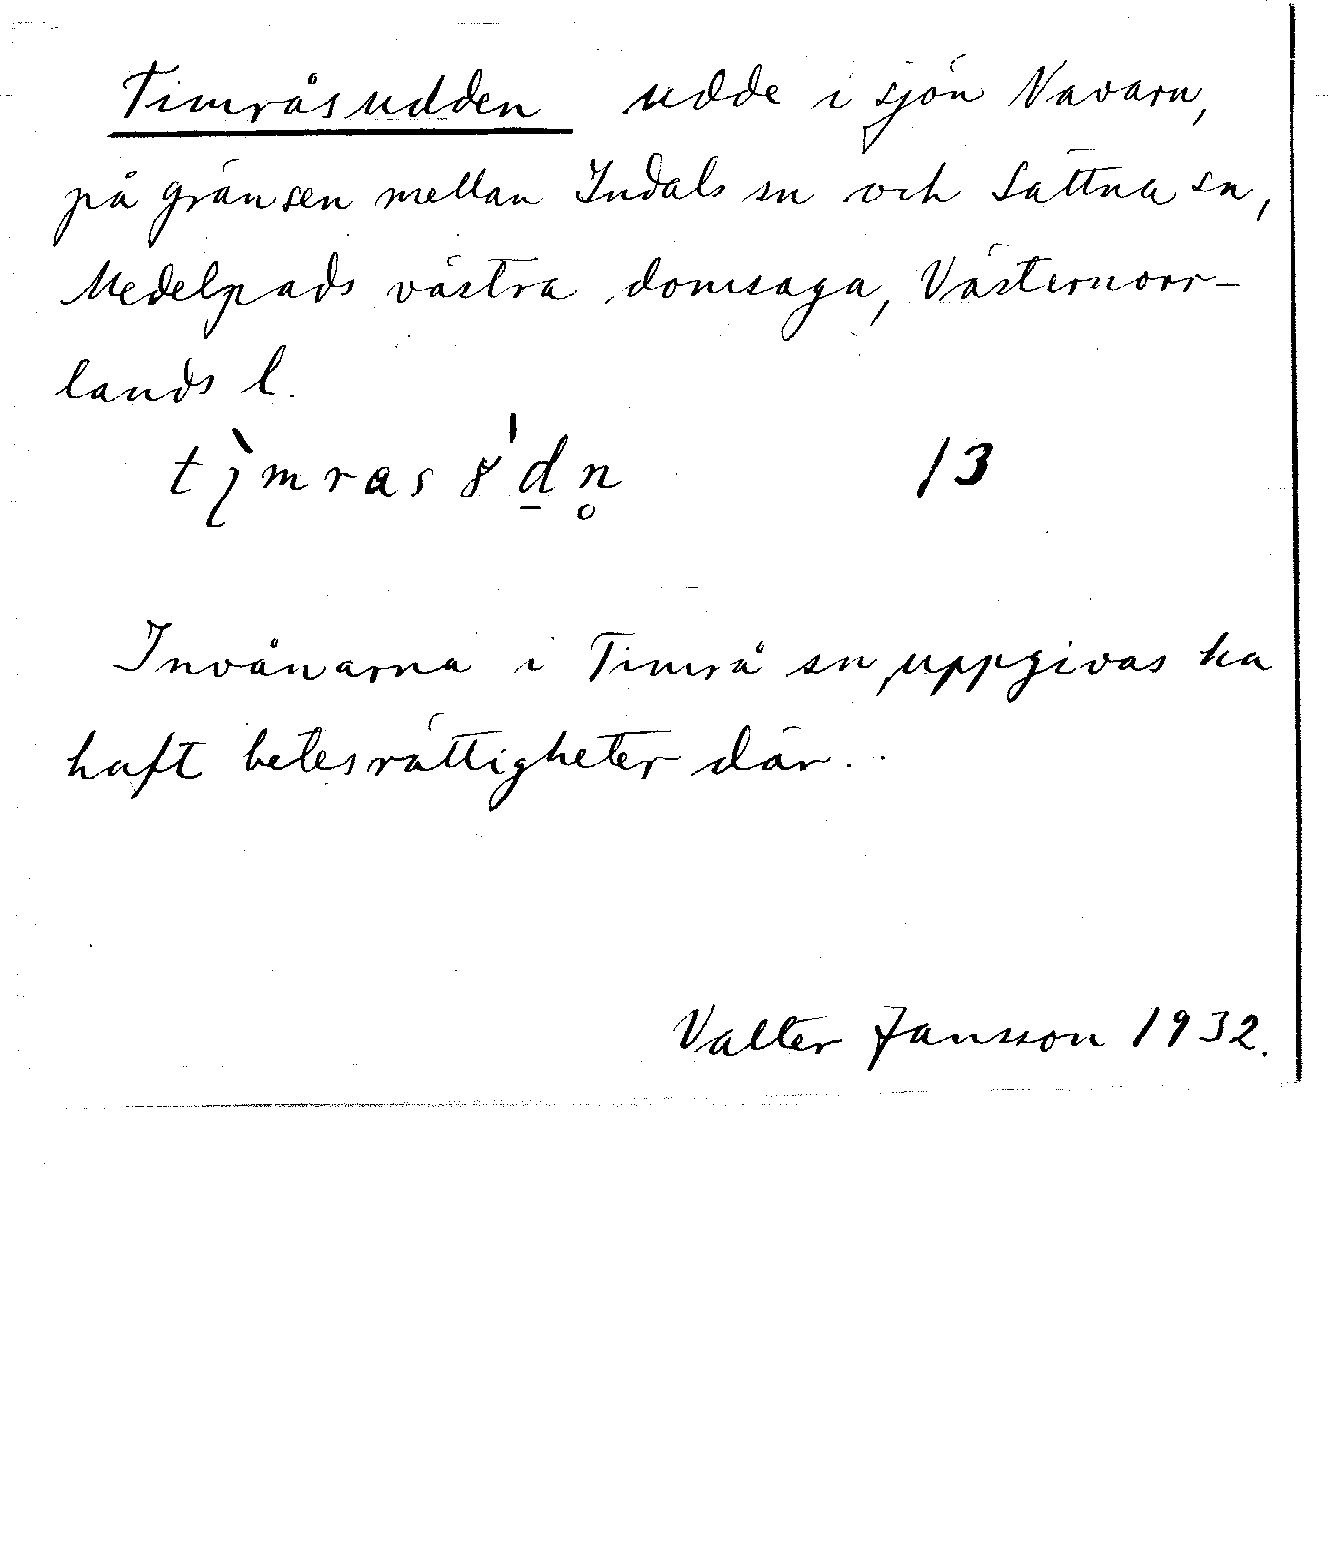 Timråsudden udde i sjön Navarn,
på gränsen mellan Indals sn och Sättna sn,
Medelpads västra domsaga, Västernorr-
lands l.
13
Invånarna i Timrå sn, uppgivas ha
haft betesrättigheter där.
Valter Jansson 1932.